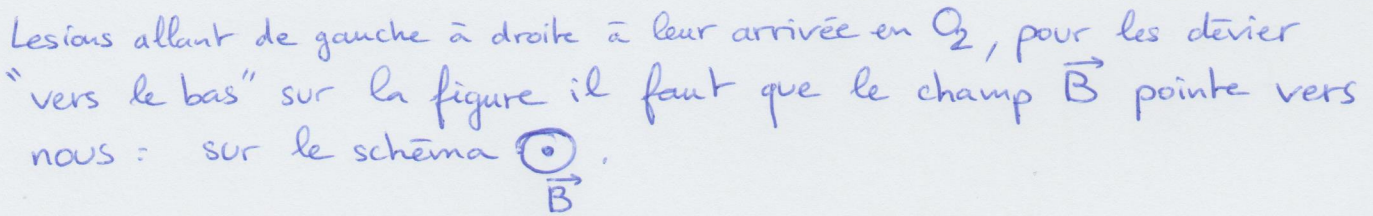 Les ions allant de gauche à droite à leur arrivée en O₂, pour les dévier
"vers le bas" sur la figure il faut que le champ B⃗ pointe vers
nous : sur le schéma ⊙.
B⃗